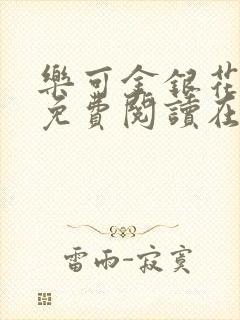 樂可金銀花
免費閱讀在
雷雨-寂寞